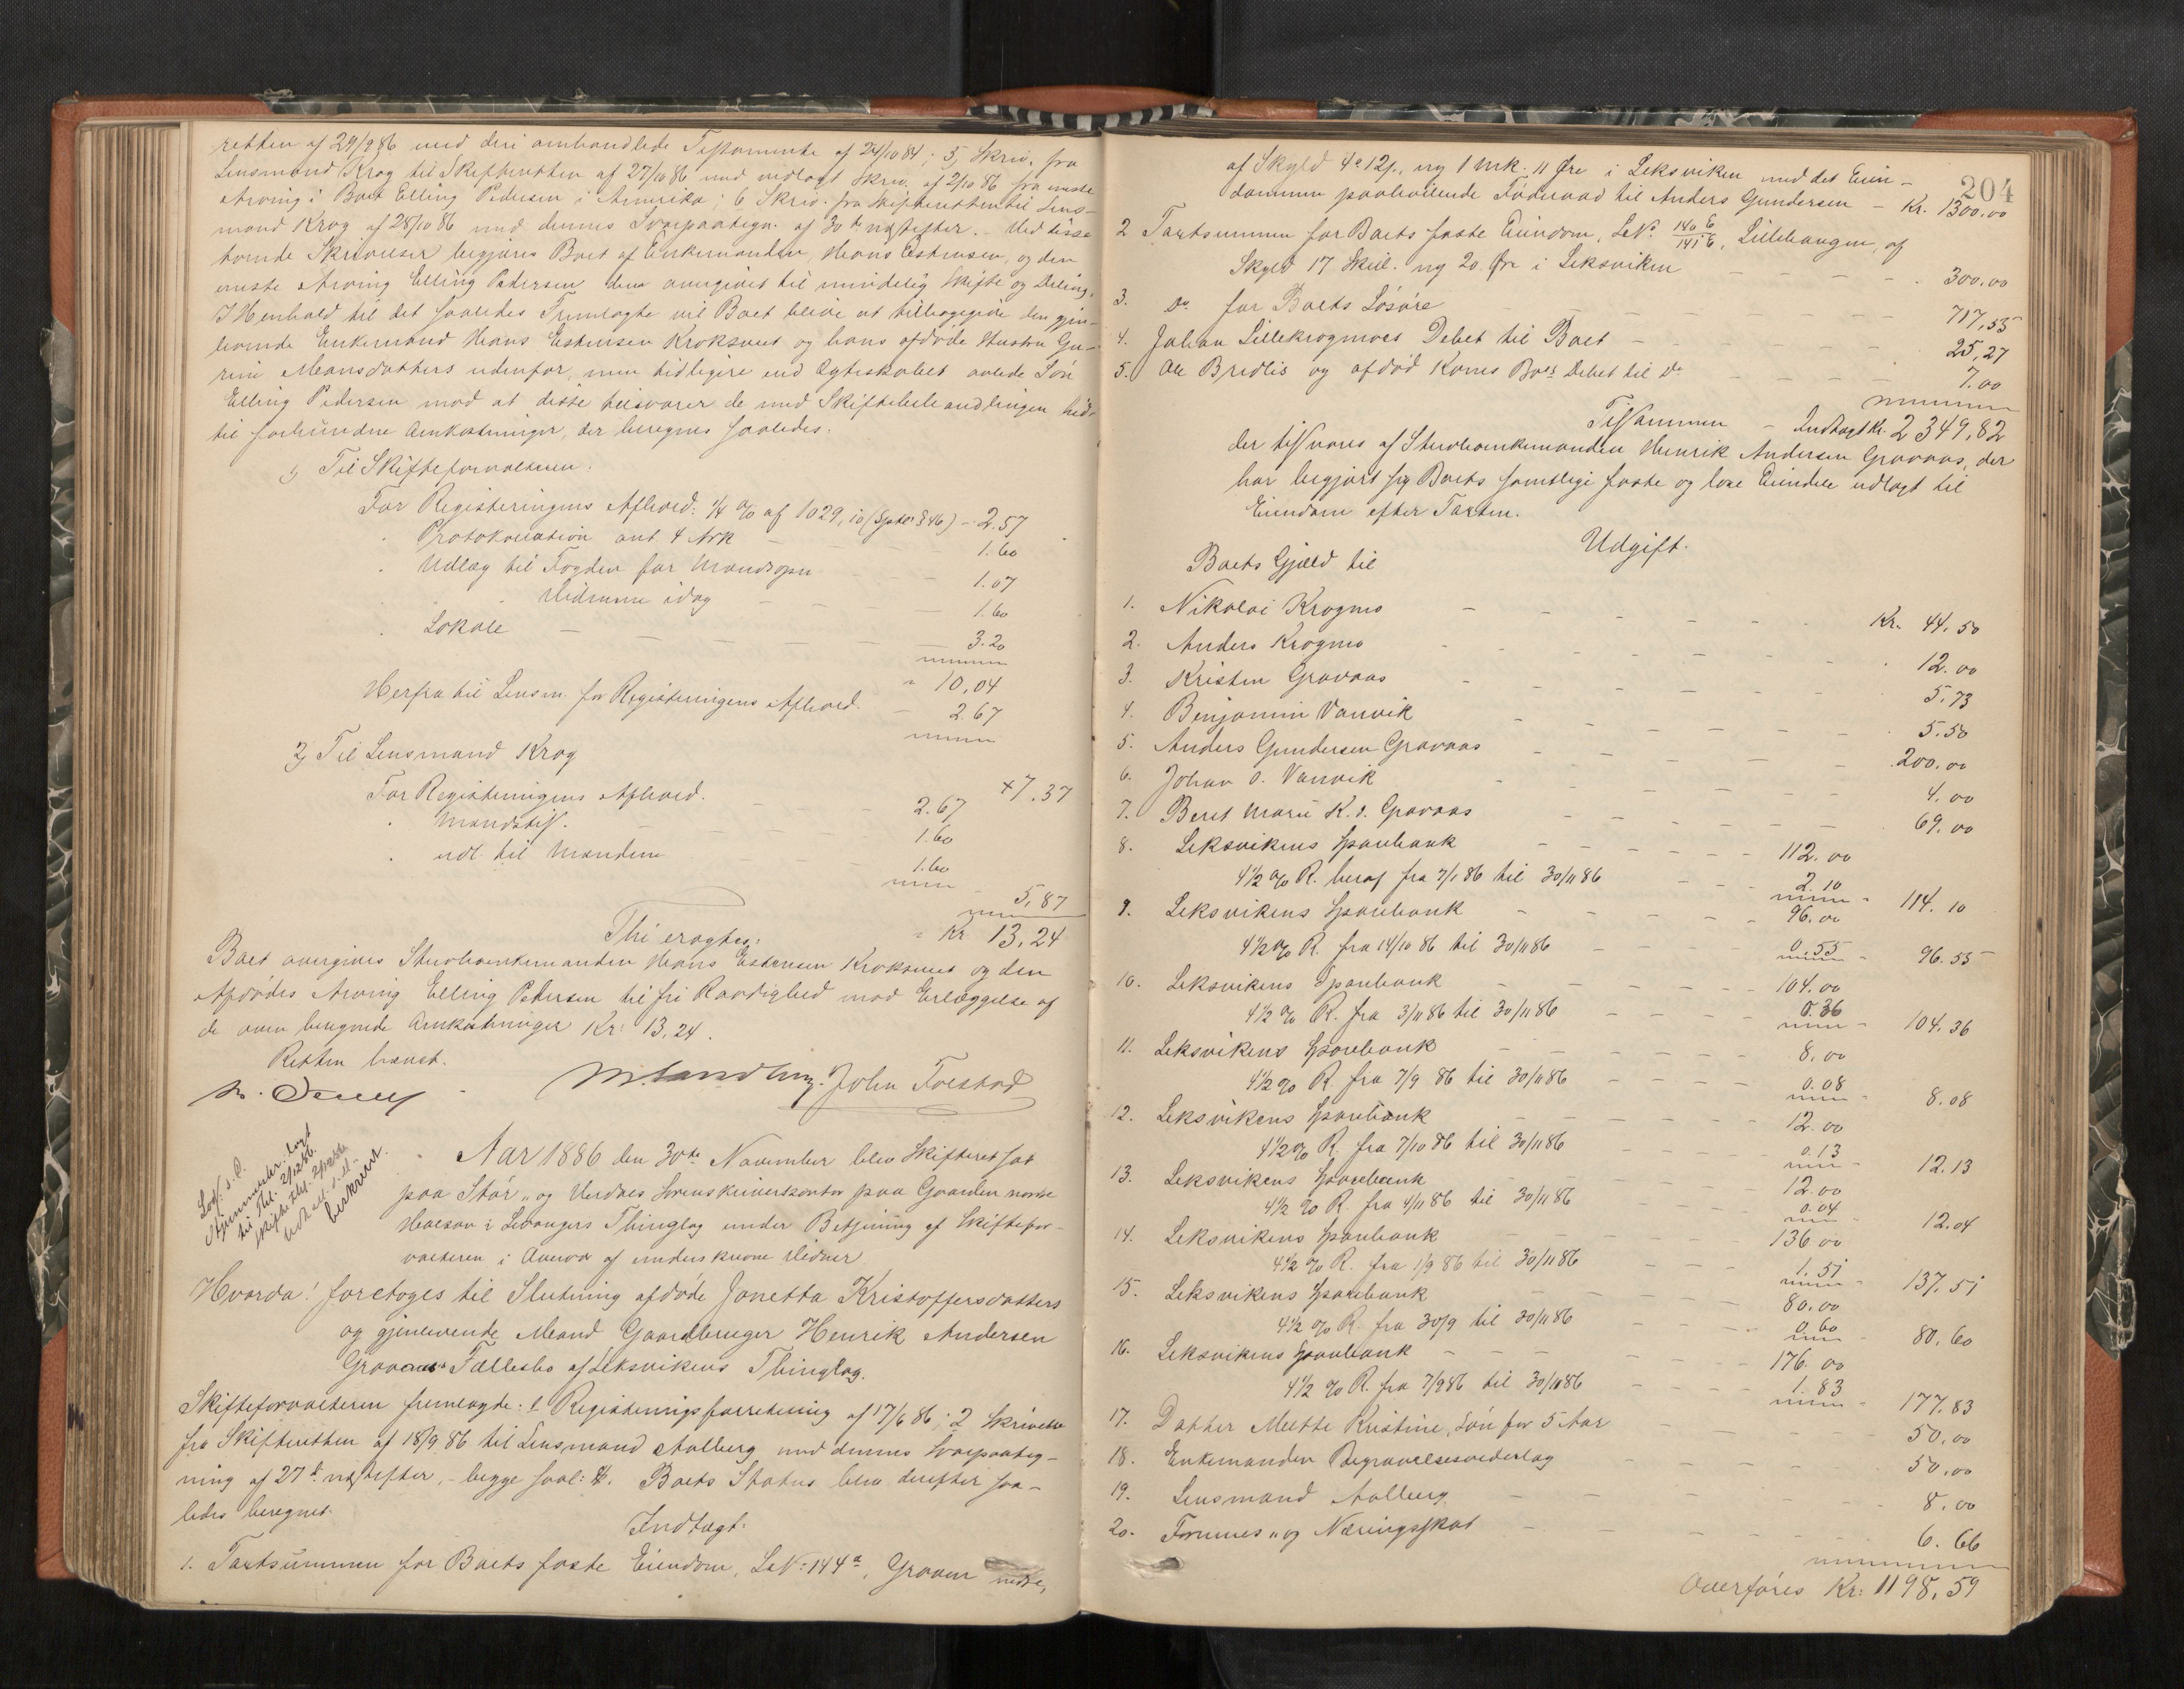 retten af 29/9 86 med deri ombandlede Testamente af 24/10 84; 5, Skriv. fra
Lensmand Krog til Skifteretten af 27/10 86 med vedlagt Skriv. af 2/10 86 fra eneste
Arving i Boet Elling Pedersen i Amerika; 6 Skriv. fra Skifteretten til Lens-
mand Krog af 28/10 86 med dennes Svarpaategn. af 30te næstefter. - Ved disse
Skrivelser begjæres Boet af Enkemanden, Hans Estensen, og den
eneste Arving Elling Pedersen overgivet til mindelig Skifte og Deling.
I Henhold til det saaledes Fremlagte vil Boet blive at tilbagegive den gjen-
levende Enkemand Hans Estensen Kroksvet og hans afdøde Hustru Gu-
rine Monsdatters udenfor, men tidligere end Egteskabet avlede Søn
Elling Pedersen mod at disse tilsvarer de med Skiftebehandlingen hid-
til forbundne Omkostninger, der beregnes saaledes.
1) Til Skifteforvalteren:
For Registeringens Afhold: 1/4 % af 1029,10 (Sptl § 46) - 2.57
" Protokollation ant 4 Ark - 1.60
" Udlæg til Fogden for Mandsopn - 1.07
" Vidnerne idag - 1.60
" Lokale - 3.20
" 10,04
Herfra til Lensm. for Registeringens Afhold. - 2.67
+7.37
2) Til Lensmand Krog
For Registeringens Afhold. 2.67
" Mandstils. 1.60
" udl. til Mændene 1.60
5,87
= Kr 13,24
Thi eragtes:
Boet overgives Stervboenkemanden Hans Estensen Kroksvet og den
Afdødes Arving Elling Pedersen til fri Raadighed mod Erlæggelse af
de oven beregnede Omkostninger Kr: 13,24.
Retten hævet.
John Forstad
Aar 1886 den 30te November blev Skifteret sat
paa Stør- og Verdals Sorenskriverkontor paa Gaarden nordre
Halsan i Levangers Thinglag under Betjening af Skiftefor-
valteren i Overvær af underskrevne Vidner
Hvorda: foretoges til Slutning afdøde Jonetta Kristoffersdatters
og gjenlevende Mand Gaardbruger Henrik Andersen
Gravaas Fællesbo af Leksvikens Thinglag.
Skifteforvalteren fremlagde: 1 Registeringsforretning af 17/6 86; 2 Skrivelse
fra Skifteretten af 18/9 86 til Lensmand Aalberg med dennes Svarpaateg-
ning af 27de næstefter, - begge saal: Boets Status blev derefter saa-
ledes beregnet.
Indtægt:
1. Taxtsummen for Boets faste Eiendom, LeN: 144a, Graven nedre,
204
af Skyld 4 o 12 s., ny 1 Mrk. 11 Øre i Leksviken med det Eien-
dommen paahvilende Føderaad til Anders Gundersen - Kr. 1300.00
2 Taxtsummen for Boets faste Eiendom, LeNo 140 6/141 6, Lillehaugen, af
Skyld 17 Skil. ny 20 Øre i Leksviken - 300.00
3. Do for Boets Løsøre - 717,55
4. Johan Lillekrogmoes Debet til Boet - 25,27
5. Ole Bredlis og afdød Kones Boes Debet til Do - 7.00
Tilsammen - Indtægt Kr. 2349,82
der tilsvares af Stervboenkemanden Henrik Andersen Gravaas, der
har begjært sig Boets samtlige faste og løse Eiendele udlagt til
Eiendom efter Taxten.
Udgift.
Boets Gjæld til
1. Nikolai Krogmo - Kr. 44.50
2. Anders Krogmo - 12.00
3. Kristen Gravaas - 5,73
4. Benjamin Vanvik - 5.50
5. Anders Gundersen Gravaas - 200.00
6. Johan O. Vanvik - 4.00
7. Beret Marie K. d. Gravaas - 69.00
8. Leksvikens Sparebank - 112.00
4 1/2 % R. heraf fra 7/1 86 til 30/11 86 - 2.10 - 114.10
9. Leksvikens Sparebank - 96.00
4 1/2 % R. fra 14/10 86 til 30/11 86 - 0.55 - 96.55
10. Leksvikens Sparebank - 104.00
4 1/2 % R. fra 3/11 86 til 30/11 86 - 0.36 - 104.36
11. Leksvikens Sparebank - 8.00
4 1/2 % R. fra 7/9 86 til 30/11 86 - 0.08 - 8.08
12. Leksvikens Sparebank - 12.00
4 1/2 % R. fra 7/10 86 til 30/11 86 - 0.13 - 12.13
13. Leksvikens Sparebank - 12.00
4 1/2 % R. fra 4/11 86 til 30/11 86 - 0.04 - 12.04
14. Leksvikens Sparebank - 136.00
4 1/2 % R. fra 1/9 86 til 30/11 86 - 1.51 - 137.51
15. Leksvikens Sparebank - 80.00
4 1/2 % R. fra 30/9 til 30/11 86 - 0.60 - 80.60
16. Leksvikens Sparebank - 176.00
4 1/2 % R. fra 7/9 86 til 30/11 86 - 1.83 - 177.83
17. Datter Mette Kristine, Løn for 5 Aar - 50.00
18. Enkemanden Begravelsesvederlag - 50.00
19. Lensmand Aalberg - 8.00
20. Formues- og Næringsskat - 6.66
Overføres Kr: 1198,59